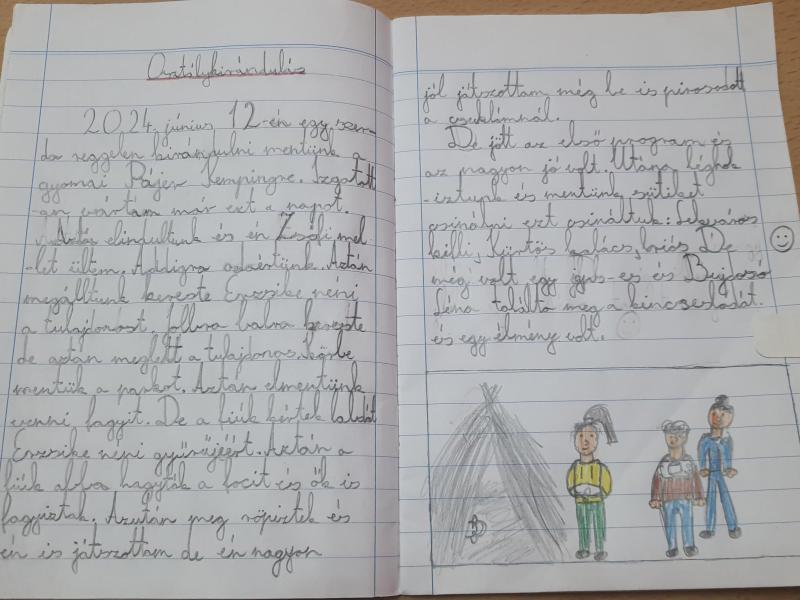 Osztálykirándulás
2024. június 12-én egy szer-
da reggelen kirándulni mentünk a
gyomai Pájer Kempingne. Izgatott
an vártam már ezt a napot.
Aztán elindultunk és én Zsófi mel
-let ültem. Addigra odaértünk. Aztán
megálltunk kereste Erzsike néni
a tulajdonost. Jobbra balra kereste
de aztán meglett a tulajdonos. Körbe
mentük a parkot. Aztán elmentünk
venni fagyit. De a fiúk kértek labdát
Erzsike néni gyűrűjéért. Aztán a
fiúk abba hagyták a focit és ők is
fagyiztak. Azután meg röpiztek és
én is játszottam de én nagyon
jól játszottam még be is pirosodott
a csuklómnál.
De jött az első program és
az nagyon jó volt. Utána
-iztunk és mentünk sütiket
csinálni ezt csináltuk:
kifli, kürtös kalács, De
még volt egy gps-es és Bujcsó
Léna találta meg a kincsesládát.
és egy élmény volt.